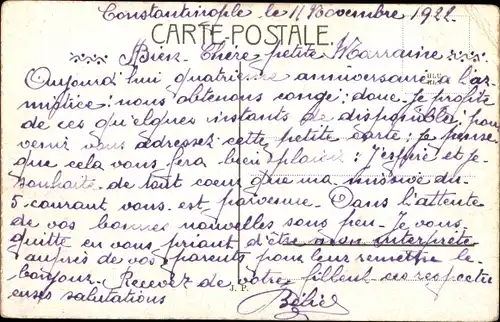 Constantinople le 11 Novembre 1922
CARTE-POSTALE.
Bien Chère petite Marraine
Aujourd'hui quatrième anniversaire de l'ar-
mistice: nous obtenons congé; donc je profite
de ces quelques instants de disponibles, pour
venir vous adresser cette petite carte; je pense
que cela vous fera bien plaisir: J'espère et je
souhaite de tout coeur que ma missive du
5 courant vous est parvenue. Dans l'attente
de vos bonnes nouvelles sous peu. Je vous
quitte en vous priant d'être mon interprète
auprès de vos parents pour leur remettre le
bonjour. Recevez de votre filleul ces respectu
euses salutations
J. P.